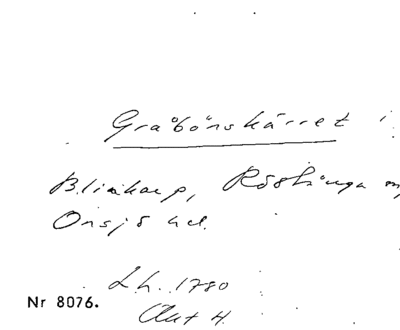 Gråbönskärret i
Blinkarp, Röstånga
Onsjö hd.
Lh. 1780
Akt H.
Nr 8076.